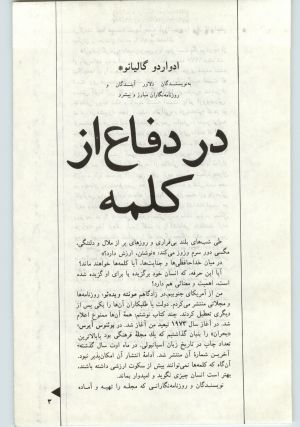 ادواردو گالیانو*
به‌نویسندگان دلاور آیندگان و
روزنامه‌نگاران مبارز و پیشرو
در دفاع از
کلمه
طی شب‌های بلند بی‌قراری و روزهای پر از ملال و دلتنگی،
مگسی دور سرم وزوز می‌کند: «نوشتن، ارزش دارد؟»
در میان خداحافظی‌ها و جنایت‌ها، آیا کلمه‌ها خواهند ماند؟
آیا این حرفه، که انسان خود برگزیده یا برای او گزیده شده
است، اهمیت و معنائی هم دارد؟
من از آمریکای جنوبیم. در زادگاهم مونته ویدئو، روزنامه‌ها
و مجلاتی منتشر می‌کردم، دولت یا طلبکاران آن‌ها را یکی پس از
دیگری تعطیل کردند. چند کتاب نوشتم: همهٔ آن‌ها ممنوع اعلام
شد. در آغاز سال ۱۹۷۳ تبعید من آغاز شد. در بوئنوس آیرس،
«بحران» را بنیان گذاشتیم که یک مجلهٔ فرهنگی بود با بالاترین
تعداد چاپ در تاریخ زبان اسپانیولی. در ماه اوت سال گذشته،
آخرین شمارهٔ آن منتشر شد. ادامهٔ انتشار آن امکان‌پذیر نبود.
آن‌گاه که کلمه‌ها نمی‌توانند بیش از سکوت ارزشی داشته باشند،
بهتر است انسان چیزی نگوید و امیدوار بماند.
نویسندگان و روزنامه‌نگارانی که مجله را تهیه و آماده
۳